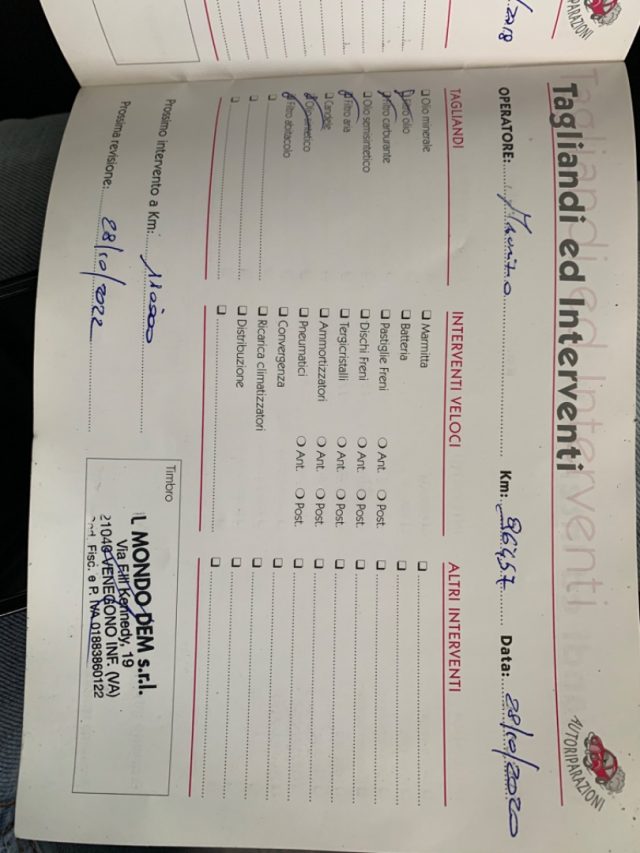 .2018
RIPARAZIONI
Tagliandi ed Interventi
AUTORIPARAZIONI
OPERATORE: Maurizio Km: 86457 Data: 28/10/2020
TAGLIANDI
Olio minerale
Filtro olio
Filtro carburante
Olio semisintetico
Filtro aria
Candele
Olio sintetico
Filtro abitacolo
INTERVENTI VELOCI
Marmitta
Batteria
Pastiglie Freni Ant. Post.
Dischi Freni Ant. Post.
Tergicristalli Ant. Post.
Ammortizzatori Ant. Post.
Pneumatici Ant. Post.
Convergenza
Ricarica climatizzatori
Distribuzione
ALTRI INTERVENTI
Prossimo intervento a Km: 110000
Prossima revisione: 28/10/2022
Timbro
IL MONDO DEM s.r.l.
Via F.lli Kennedy, 19
21040 VENEGONO INF. (VA)
Cod. Fisc. e P. IVA 01883860122